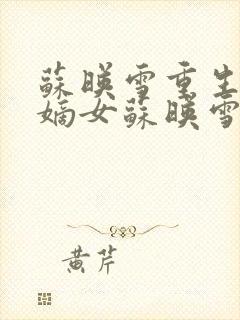 蘇暎雪重生
嫡女蘇暎雪
黄芹